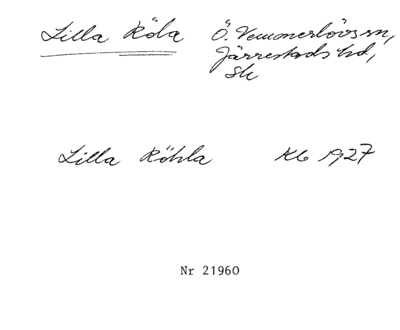 Lilla Röla Ö. Vemmerlövs sn,
Järrestads hd,
Sk
Lilla Röhla Kb 1927
Nr 21960